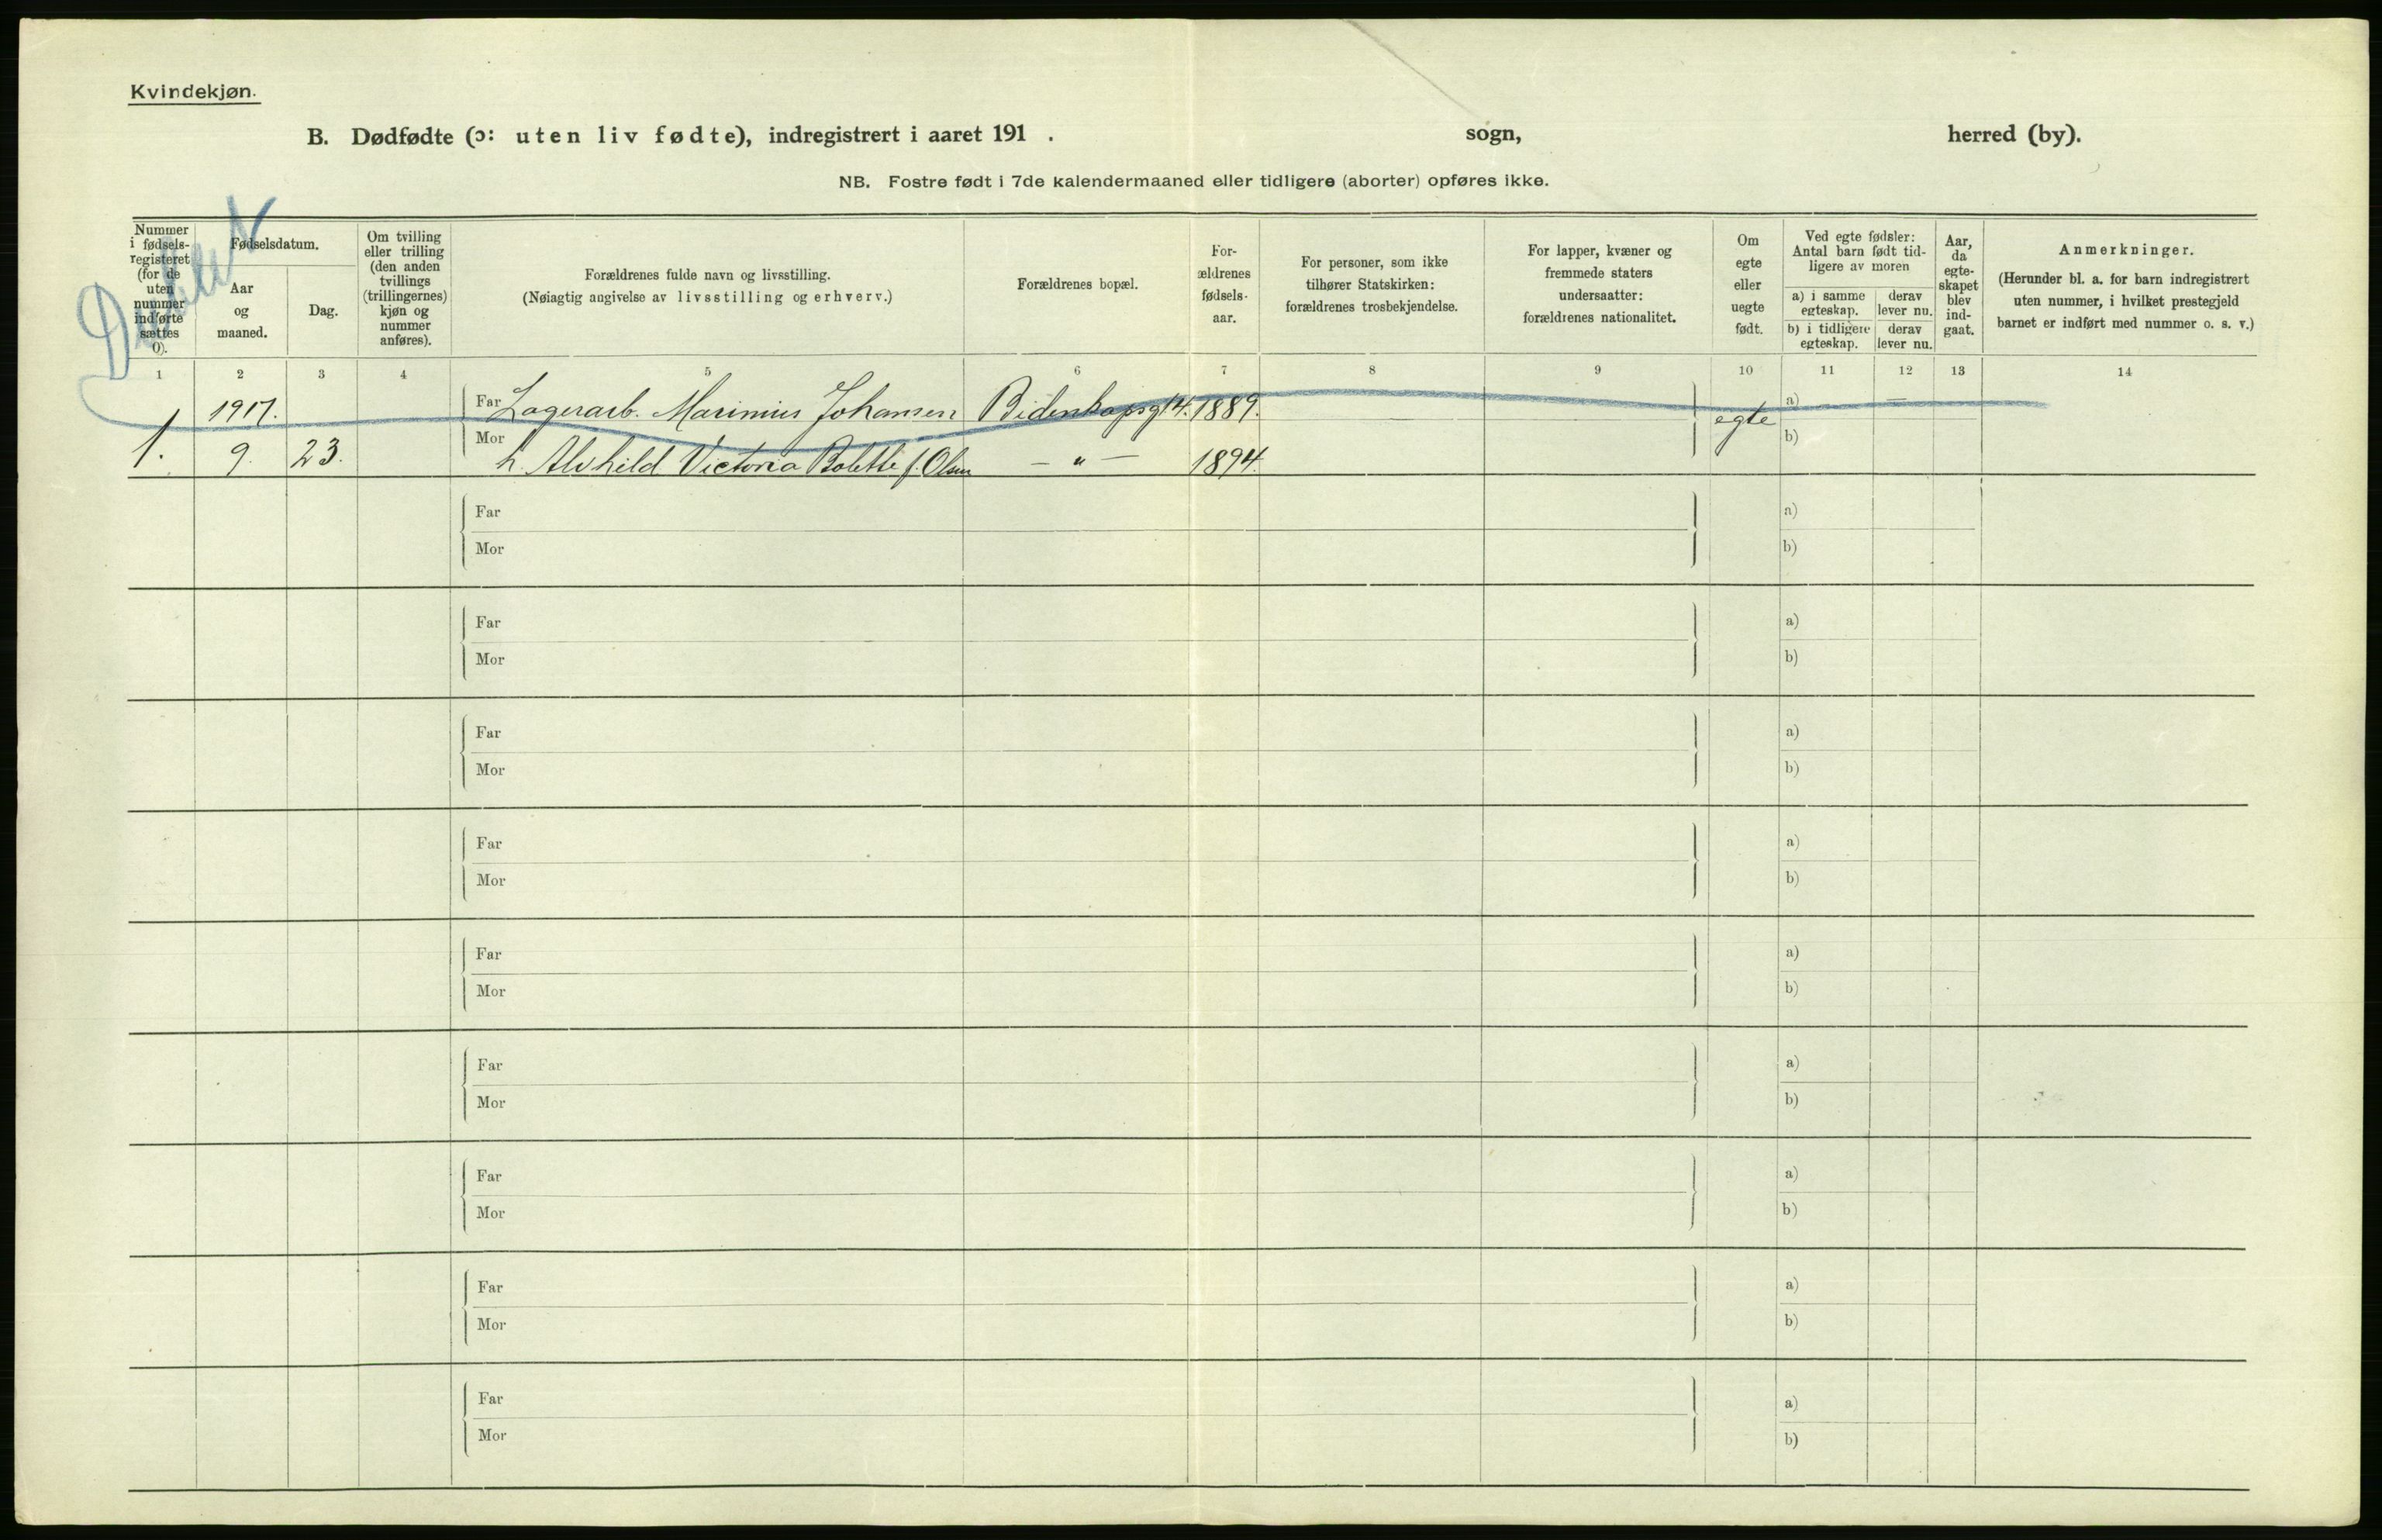 Kvindekjøn.
B. Dødfødte (ɔ: uten liv fødte), indregistrert i aaret 191 . sogn, herred (by).
NB. Fostre født i 7de kalendermaaned eller tidligere (aborter) opføres ikke.
Nummer
i fødsels-
registeret
(for de
uten
nummer
indførte
sættes
0).
Fødselsdatum.
Aar
og
maaned.
Dag.
Om tvilling
eller trilling
(den anden
tvillings
(trillingernes)
kjøn og
nummer
anføres).
Forældrenes fulde navn og livsstilling.
(Nøiagtig angivelse av livsstilling og erhverv.)
Forældrenes bopæl.
For-
ældrenes
fødsels-
aar.
For personer, som ikke
tilhører Statskirken:
forældrenes trosbekjendelse.
For lapper, kvæner og
fremmede staters
undersaatter:
forældrenes nationalitet.
Om
egte
eller
uegte
født.
Ved egte fødsler:
Antal barn født tid-
ligere av moren
a) i samme
egteskap.
derav
lever nu.
b) i tidligere
egteskap.
derav
lever nu.
Aar,
da
egte-
skapet
blev
ind-
gaat.
Anmerkninger.
(Herunder bl. a. for barn indregistrert
uten nummer, i hvilket prestegjeld
barnet er indført med nummer o. s. v.)
1 2 3 4 5 6 7 8 9 10 11 12 13 14
1917. Far Lagerarb. Marinius Johansen Bidenkapsg 14. 1889. egte a) — —
1. 9. 23. Mor h. Alvhild Victoria Bolette f. Olsen — " — 1894 b)
Far a)
Mor b)
Far a)
Mor b)
Far a)
Mor b)
Far a)
Mor b)
Far a)
Mor b)
Far a)
Mor b)
Far a)
Mor b)
Far a)
Mor b)
Far a)
Mor b)